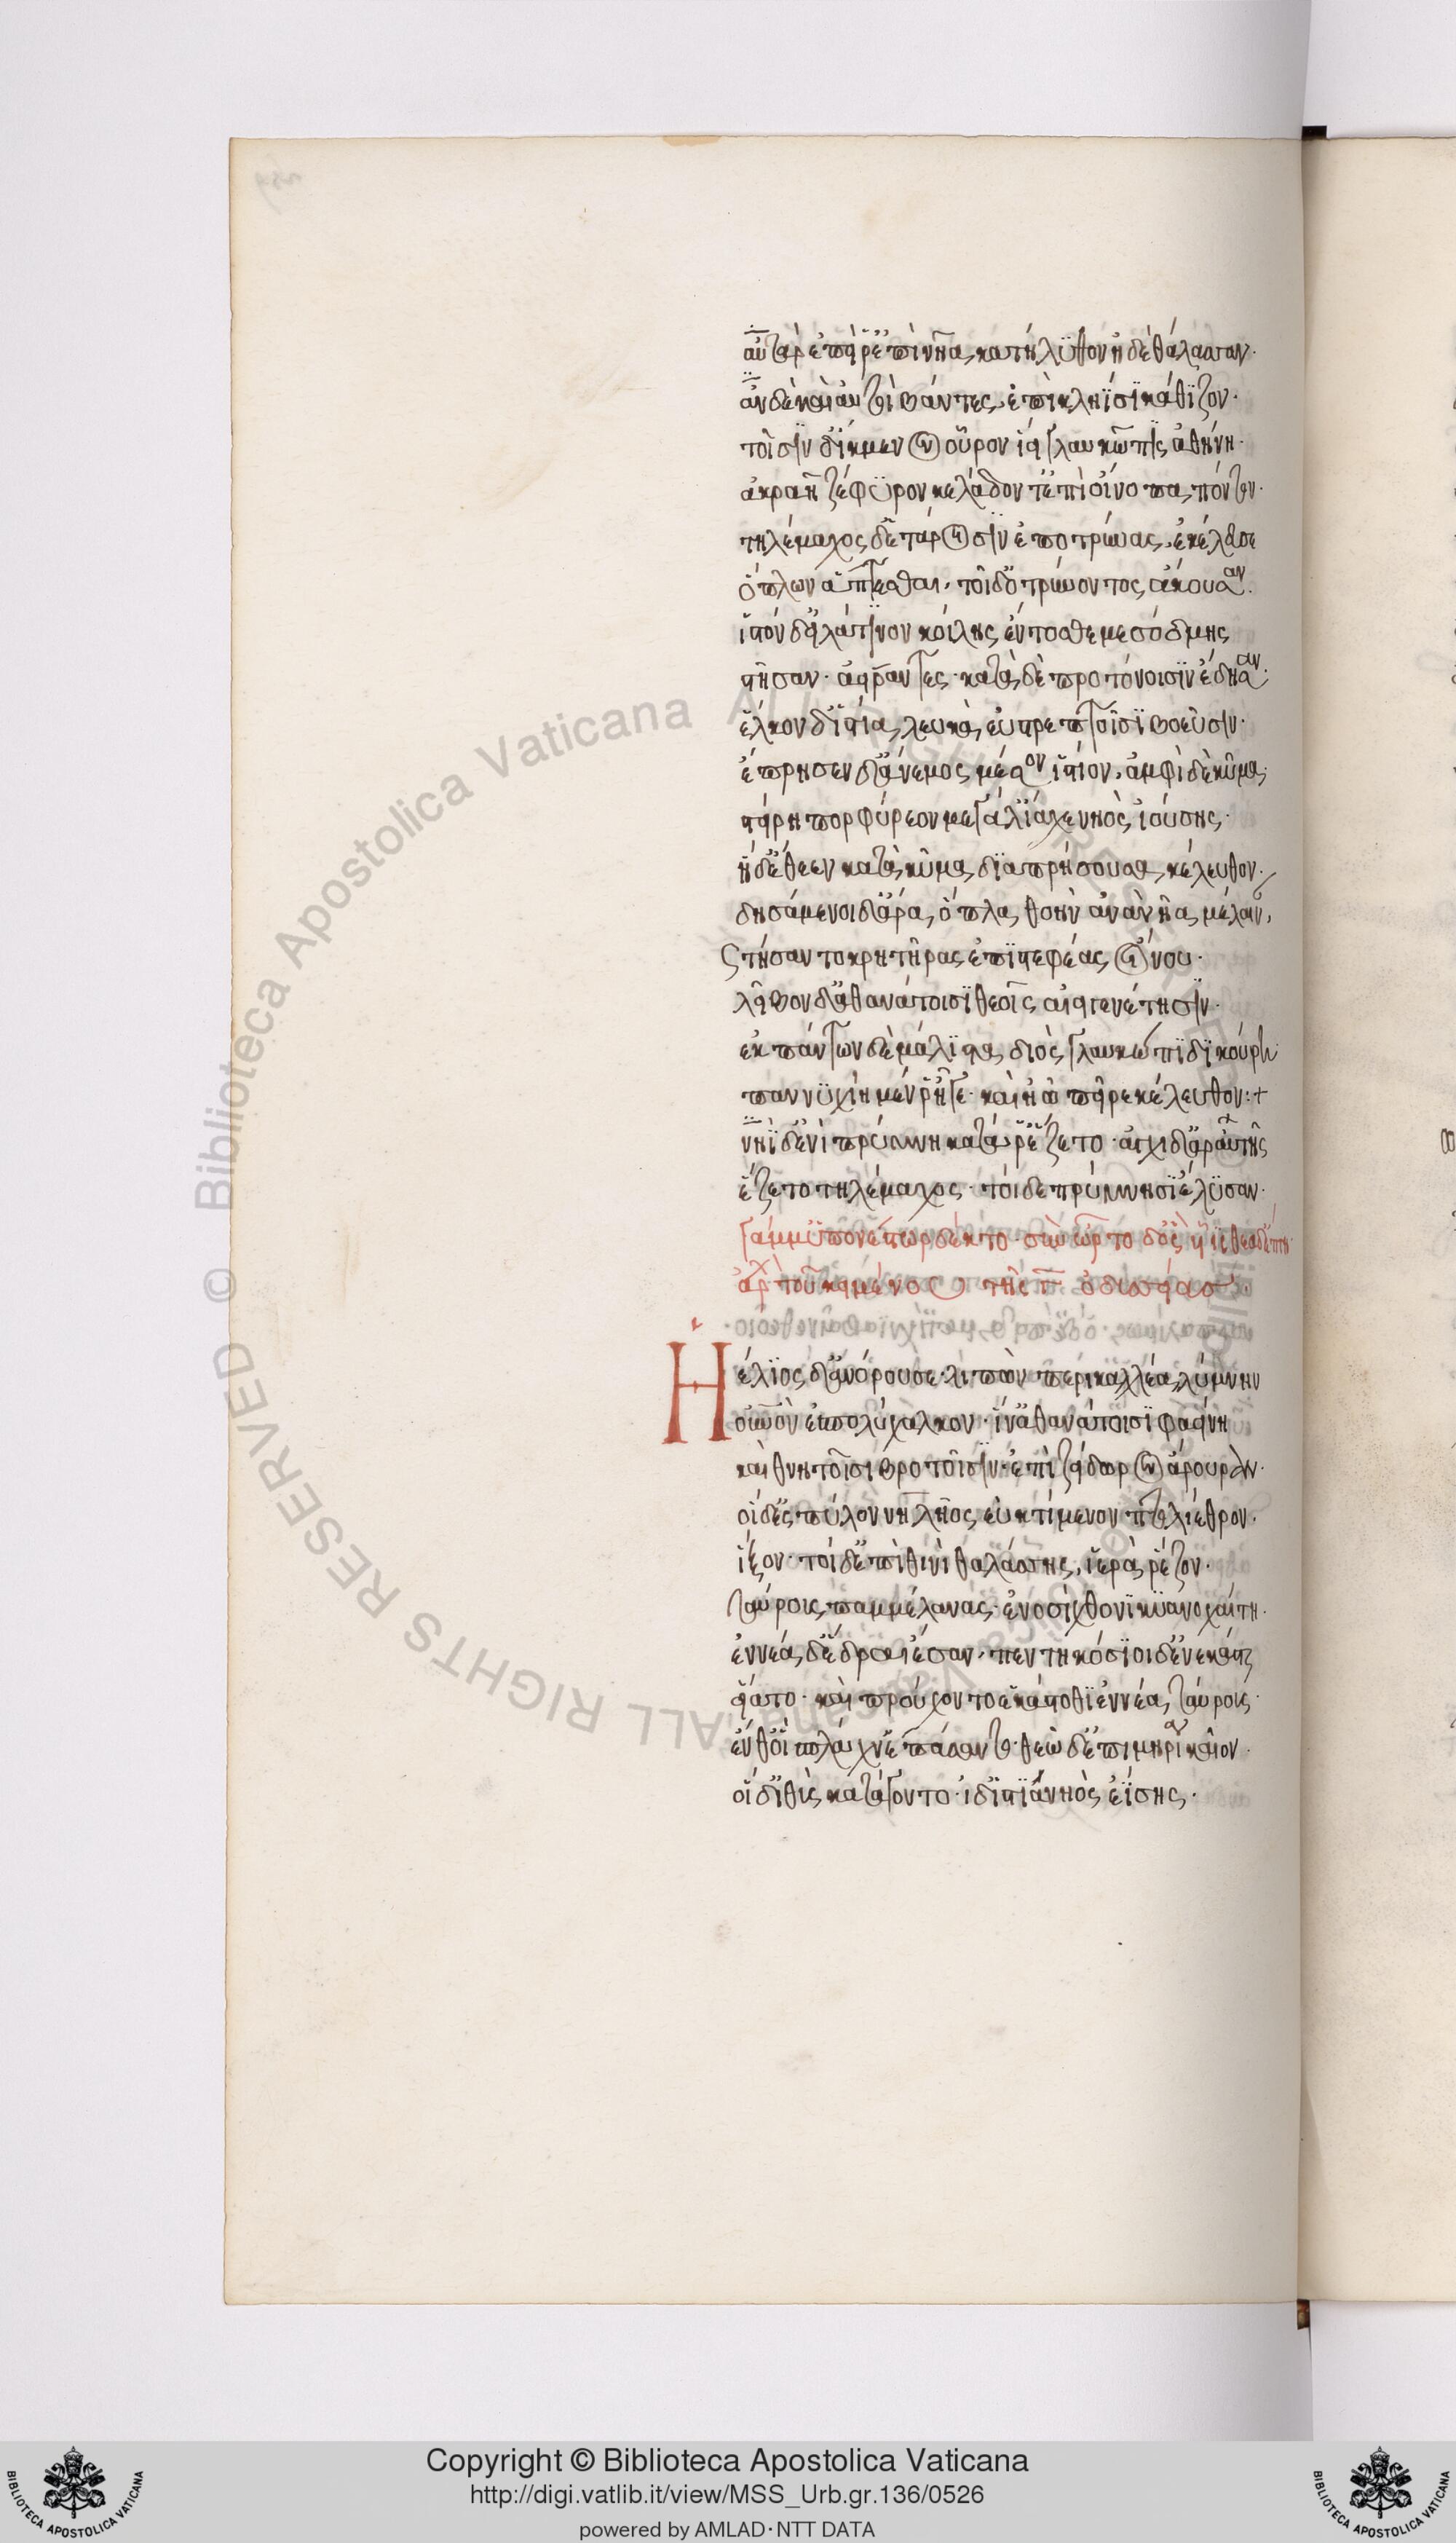 αὐτὰρ ἐπεί ῥ' ἐπὶ νῆα κατήλυθον ἠδὲ θάλασσαν·
ἂν δὲ καὶ αὐτοὶ βάντες, ἐπὶ κληῖσι κάθιζον·
τοῖσιν δ' ἴκμενον οὖρον ἵει γλαυκῶπις ἀθήνη·
ἀκραῆ ζέφυρον κελάδοντ' ἐπὶ οἴνοπα πόντον·
τηλέμαχος δ' ἑτάροισιν ἐποτρύνας, ἐκέλευσε
ὅπλων ἅπτεσθαι, τοὶ δ' ὀτρύνοντος ἄκουσαν·
ἱστὸν δ' εἰλάτινον κοίλης ἔντοσθε μεσόδμης
στῆσαν ἀείραντες· κατὰ δὲ προτόνοισιν ἔδησαν·
ἕλκον δ' ἱστία λευκὰ ἐϋστρέπτοισι βοεῦσιν·
ἔπρησεν δ' ἄνεμος μέσον ἱστίον, ἀμφὶ δὲ κῦμα
στείρῃ πορφύρεον μεγάλ' ἴαχε νηὸς ἰούσης·
ἡ δ' ἔθεεν κατὰ κῦμα διαπρήσουσα κέλευθον·
δησάμενοι δ' ἄρα ὅπλα θοὴν ἀνὰ νῆα μέλαιναν,
στήσαντο κρητῆρας ἐπιστεφέας οἴνου·
λεῖβον δ' ἀθανάτοισι θεοῖς αἰειγενέτῃσιν·
ἐκ πάντων δὲ μάλιστα διὸς γλαυκώπιδι κούρῃ·
παννυχίη μέν ῥ' ἥγε καὶ ἠῶ πεῖρε κέλευθον:+
νηῒ δ' ἐνὶ πρύμνῃ κατ' ἄρ' ἕζετο· ἄγχι δ' ἄρ' αὐτῆς
ἕζετο τηλέμαχος· τοὶ δὲ πρυμνήσι' ἔλυσαν·
Ἠέλιος δ' ἀνόρουσε λιπὼν περικαλλέα λίμνην
οὐρανὸν ἐς πολύχαλκον· ἵν' ἀθανάτοισι φαείνῃ
καὶ θνητοῖσι βροτοῖσιν ἐπὶ ζείδωρον ἄρουραν·
οἱ δὲ πύλον νηλῆος ἐϋκτίμενον πτολίεθρον·
ἷξον· τοὶ δ' ἐπὶ θινὶ θαλάσσης, ἱερὰ ῥέζον·
ταύρους παμμέλανας· ἐνοσίχθονι κυανοχαίτῃ·
ἐννέα δ' ἕδραι ἔσαν, πεντηκόσιοι δ' ἐν ἑκάστῃ
εἵατο· καὶ προύχοντο ἑκάστοθι ἐννέα ταύρους·
ἔνθ' οἱ σπλάγχν' ἐπάσαντο· θεῷ δ' ἐπὶ μηρί' ἔκαιον·
οἱ δ' ἰθὺς κατάγοντο· ἰδ' ἱστία νηὸς ἐΐσης·
© Biblioteca Apostolica Vaticana ALL RIGHTS RESERVED
Copyright © Biblioteca Apostolica Vaticana
http://digi.vatlib.it/view/MSS_Urb.gr.136/0526
powered by AMLAD·NTT DATA
BIBLIOTECA APOSTOLICA VATICANA
BIBLIOTECA APOSTOLICA VATICANA